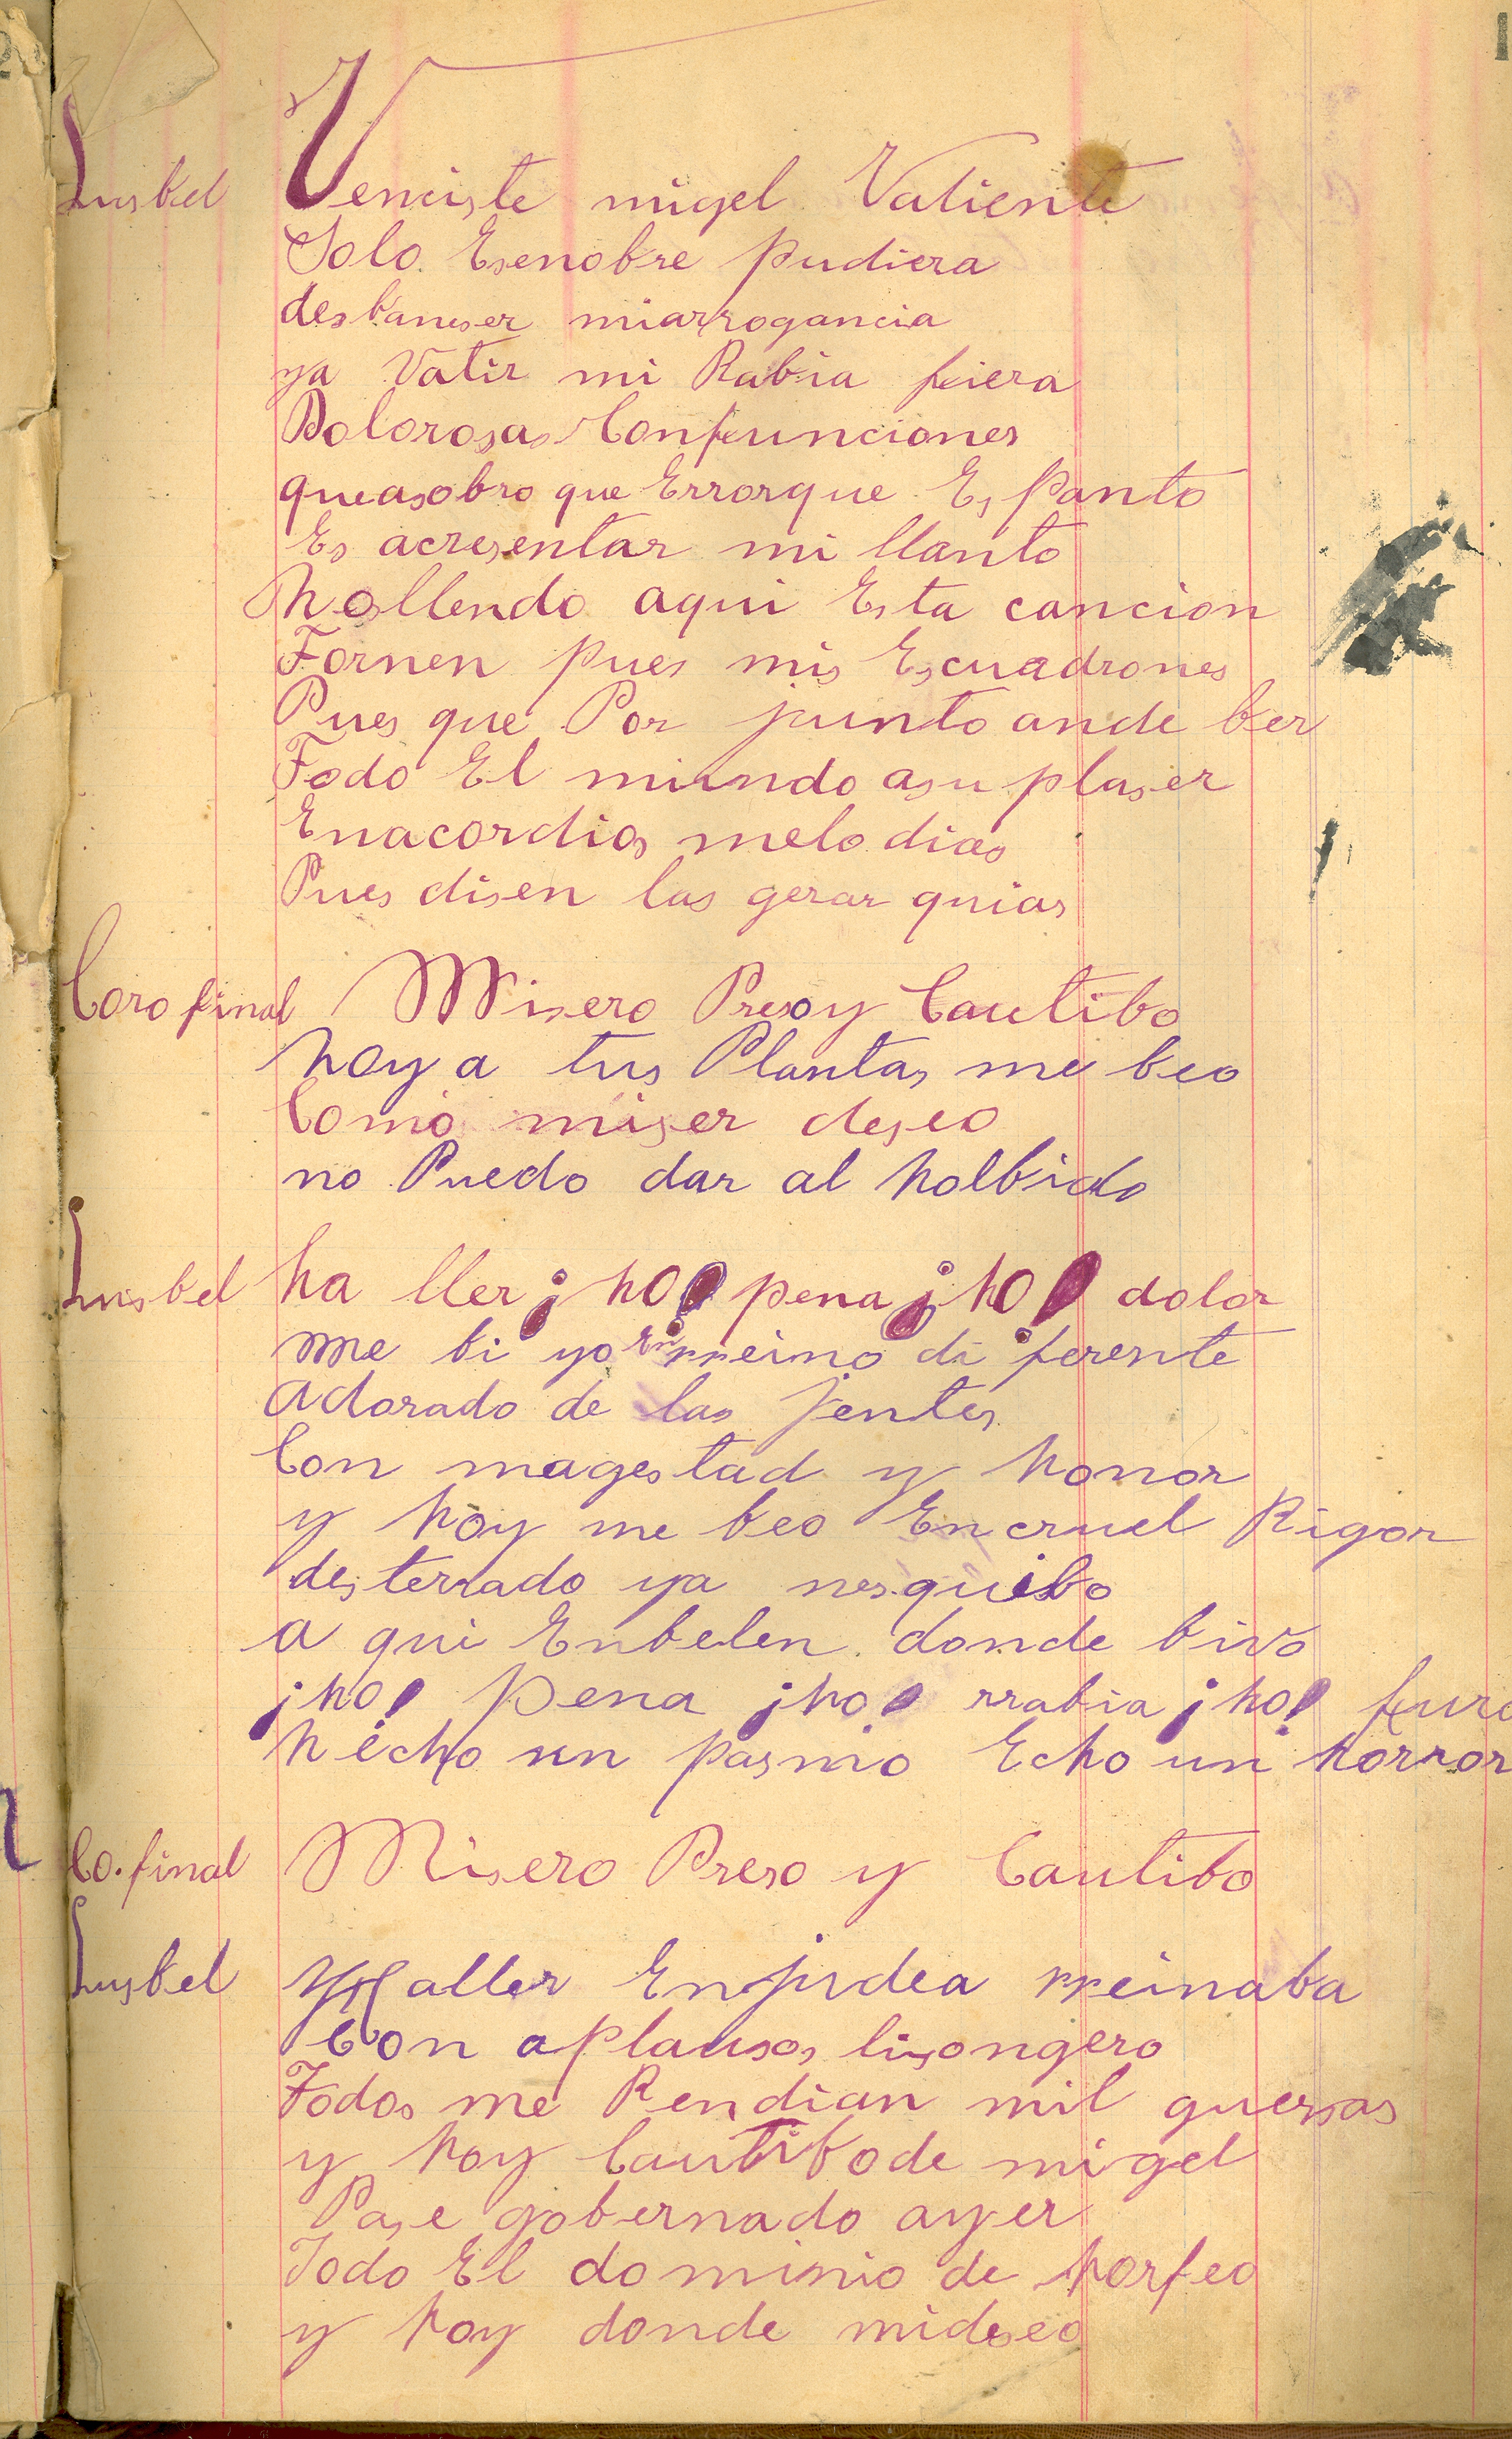 Lusbel Venciste migel Valiente
Solo Esenobre pudiera
desbaneser miarrogancia
ya Vatir mi Rabia fiera
Dolorosas Confunciones
queasobro que Errorque Espanto
Es acresentar mi llanto
hollendo aqui Esta cancion
Tornen pues mis Escuadrones
Pues que Por junto ande ber
Todo El mundo asu plaser
Enacordios melodias
Pues disen las gerarquias
Coro final Misero Preso y Cautibo
hoy a tus Plantas me beo
Como miser deseo
no Puedo dar al holbido
Lusbel ha ller ¡ho! pena ¡ho! dolor
me bi yo En rreino diferente
adorado de las jentes
Con magestad y honor
y hoy me beo Encruel Rigor
desterrado ya nesquibo
a qui Enbelen donde bivo
¡ho! pena ¡ho! rrabia ¡ho! furo
hecho un pasmo Echo un horror
Co. final Misero Preso y Cautibo
Lusbel Haller Enjudea rreinaba
Con aplausos lisongero
Todos me Rendian mil
y hoy Cautibode migel
Pase gobernado ayer
Todo El dominio de horfeo
y hoy donde mideseo